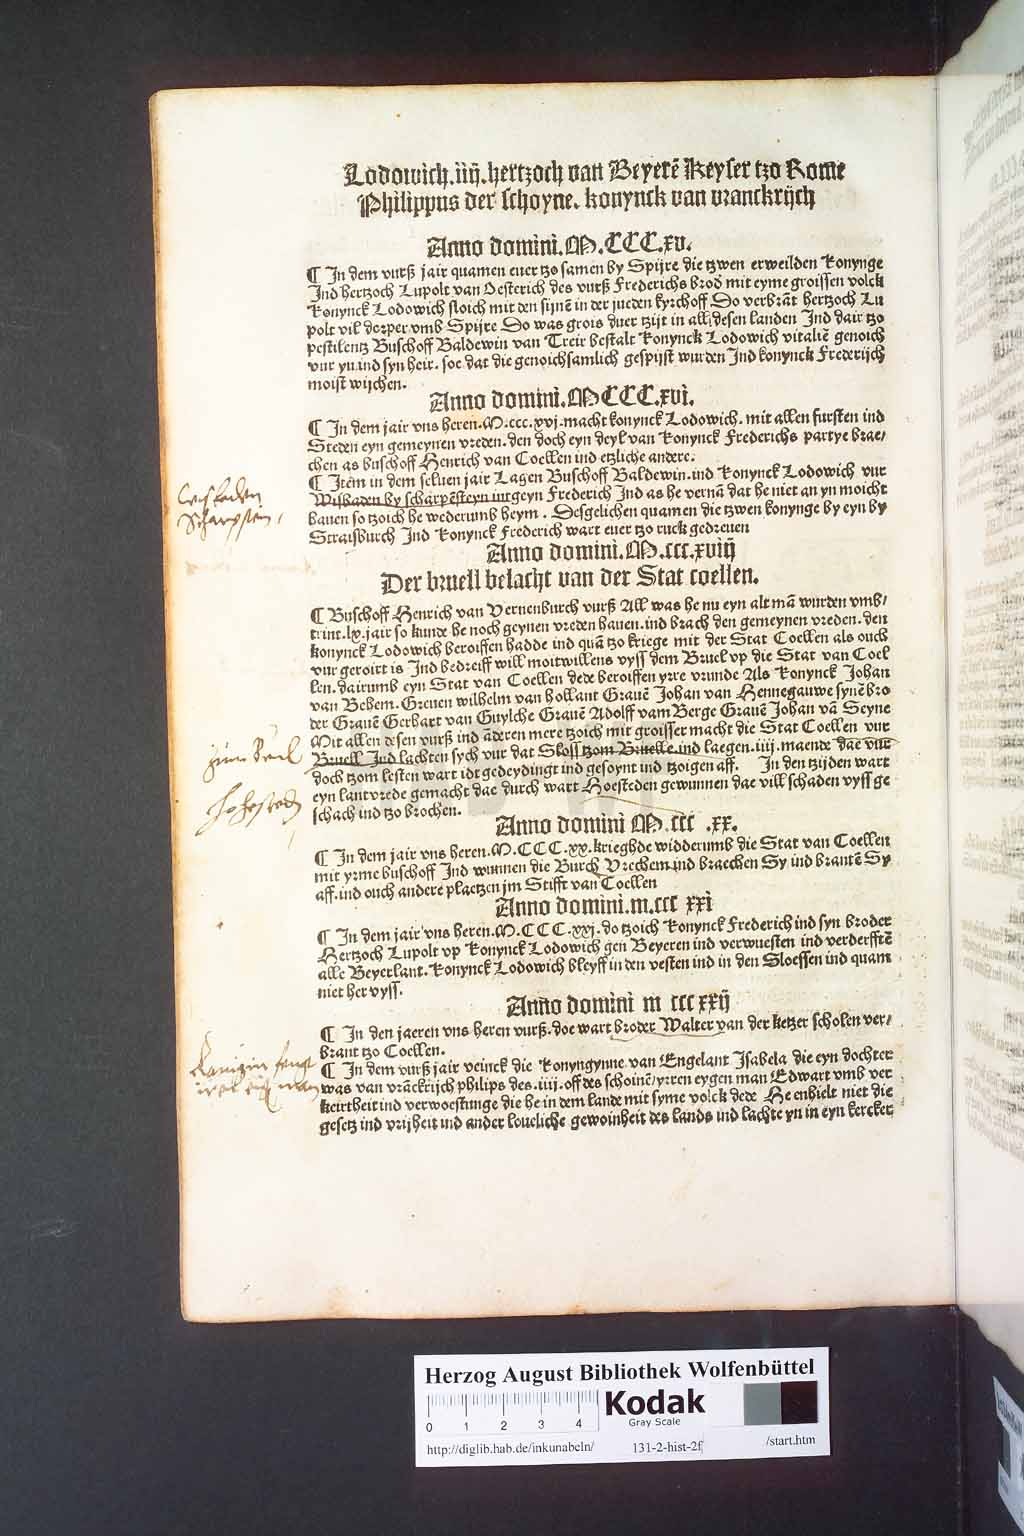 Lodowich.iiij.hertzoch van Beyerē Keyser tzo Rome
Philippus der schoyne. konynck van vranckrijch
Anno domini.M.CCC.xv.
¶ In dem vurß jair quamen euer tzo samen by Spijre die tzwen erweilden Konynge
Ind hertzoch Lupolt van Oesterich des vurß Frederichs brod mit eyme groissen volck
Konynck Lodowich floich mit den sijnē in der jueden kyrchoff Do verbrāt hertzoch Lu
polt vil dorper vmb Spijre Do was grois duer tzijt in all desen landen Ind dair tzo
pestilentz Buschoff Baldewin van Treir bestalt Konynck Lodowich vitaliē genoich
vur yn ind syn heir. soe dat die genoichsamlich gespijst wurden Ind konynck Frederijch
moist wijchen.
Anno domini.MCCC.xvi.
¶ In dem jair vns heren.M.ccc.xvj.macht konynck Lodowich. mit allen fursten ind
Steden eyn gemeynen vreden.den doch eyn deyl van Konynck Frederichs partye brae/
chen as buschoff Henrich van Coellen ind etzliche andere.
¶ Itē in dem seluen jair Lagen Buschoff Baldewin.ind Konynck Lodowich vur
Wisbaden by scharpēsteyn intgeyn Frederich Ind as he vernā dat he niet an yn moicht
bauen so tzoich he wederumb heym . Desgelichen quamen die tzwen konynge by eyn by
Straisburch Ind Konynck Frederich wart euer tzo ruck gedreuen
wisbaden
Scharpstein
Anno domini.M.ccc.xviij
Der bruell belacht van der Stat coellen.
¶ Buschoff Henrich van Vernenburch vurß All was he nu eyn alt mā wurden vmb/
trint.lx.jair so kunde he noch geynen vreden hauen.ind brach den gemeynen vreden.den
konynck Lodowich beroiffen hadde ind quā tzo kriege mit der Stat Coellen als ouch
vur geroirt is Ind bedreiff will moitwillens vyss dem Bruel vp die Stat van Coel
len.dairumb eyn Stat van Coellen dede beroiffen yrre vrunde Als Konynck Johan
van Behem.Greuen wilhelm van hollant Grauē Johan van Hennegauwe synē bro
der Grauē Gerhart van Guylche Grauē Adolff vam Berge Grauē Johan vā Seyne
Mit allen desen vurß ind āderen mere tzoich mit groisser macht die Stat Coellen vur
Bruell Ind lachten sych vur dat Sloss tzom Bruelle.ind laegen.iiij.maende dae vur
doch tzom lesten wart idt gedeydingt ind gesoynt ind tzoigen aff. In den tzijden wart
eyn lantvrede gemacht dae durch wart Hoesteden gewunnen dae vill schaden vyss ge
schach ind tzo brochen.
Hohested
Anno domini M.ccc .xx.
¶ In dem jair vns heren.M.CCC.xx.krieghde widderumb die Stat van Coellen
mit yrme buschoff Ind wunnen die Burch Vrechem ind braechen Sy ind brantē Sy
aff.ind ouch andere plaetzen jm Stifft van Coellen
Anno domini.m.ccc xxi
¶ In dem jair vns heren.M.CCC.xxj.do tzoich Konynck Frederich ind syn broder
Hertzoch Lupolt vp Konynck Lodowich gen Beyeren ind verwuesten ind verderfftē
alle Beyerlant.Konynck Lodowich bleyff in den vesten ind in den Sloessen ind quam
niet her vyss.
Anno domini m cccxxij
¶ In den jaeren vns heren vurß.doe wart broder Walter van der ketzer scholen ver/
brant tzo Coellen.
¶ In dem vurß jair veinck die Konyngynne van Engelant Isabela die eyn dochter
was van vrāckrijch philips des.iiij.off des schoinē/yrren eygen man Edwart vmb ver
keirtheit ind verwoestunge die he in dem lande mit syme volck dede He enhielt niet die
gesetz ind vrijheit ind ander loueliche gewoinheit des lands ind lachte yn in eyn kercker
Herzog August Bibliothek Wolfenbüttel
0 1 2 3 4
Kodak
Gray Scale
http://diglib.hab.de/inkunabeln/ 131-2-hist-2f /start.htm